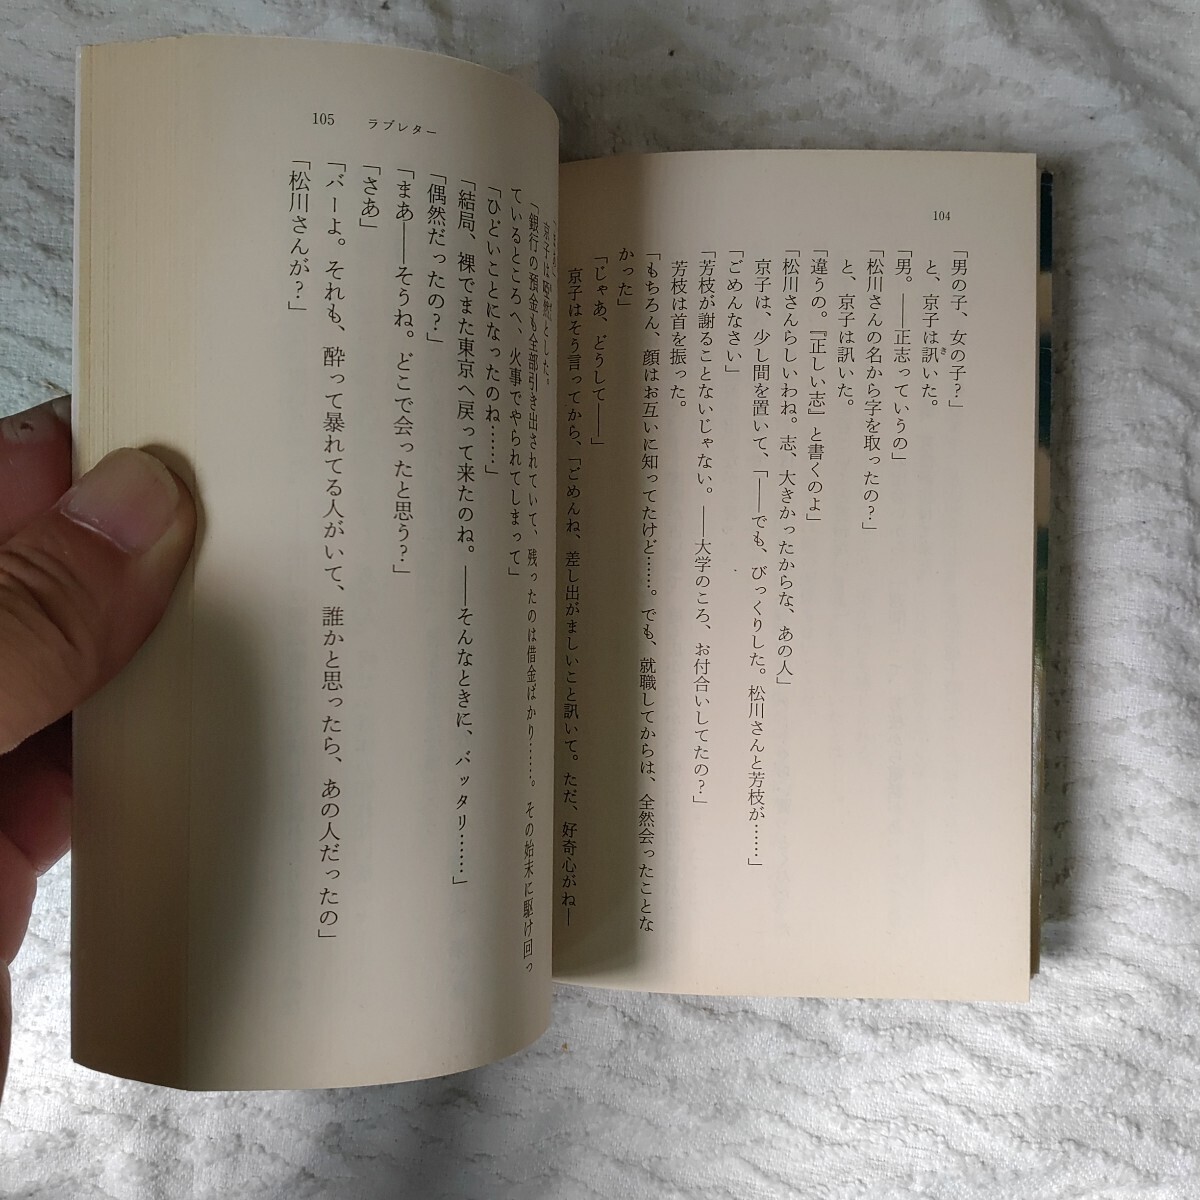 104
「男の子、女の子？」
と、京子は訊いた。
き
「男。――正志っていうの」
「松川さんの名から字を取ったの？」
と、京子は訊いた。
「違うの。『正しい志』と書くのよ」
「松川さんらしいわね。志、大きかったからな、あの人」
京子は、少し間を置いて、「――でも、びっくりした。松川さんと芳枝が……」
「ごめんなさい」
「芳枝が謝ることないじゃない。――大学のころ、お付合いしてたの？」
芳枝は首を振った。
「もちろん、顔はお互いに知ってたけど……。でも、就職してからは、全然会ったことな
かった」
「じゃあ、どうして――」
京子はそう言ってから、「ごめんね、差し出がましいこと訊いて。ただ、好奇心がね―
105 ラブレター
京子は啞然とした。
「銀行の預金も全部引き出されていて、残ったのは借金ばかり……。その始末に駆け回っ
ているところへ、火事でやられてしまって」
「ひどいことになったのね……」
「結局、裸でまた東京へ戻って来たのね。――そんなときに、バッタリ……」
「偶然だったの？」
「まあ――そうね。どこで会ったと思う？」
「さあ」
「バーよ。それも、酔って暴れてる人がいて、誰かと思ったら、あの人だったの」
「松川さんが？」